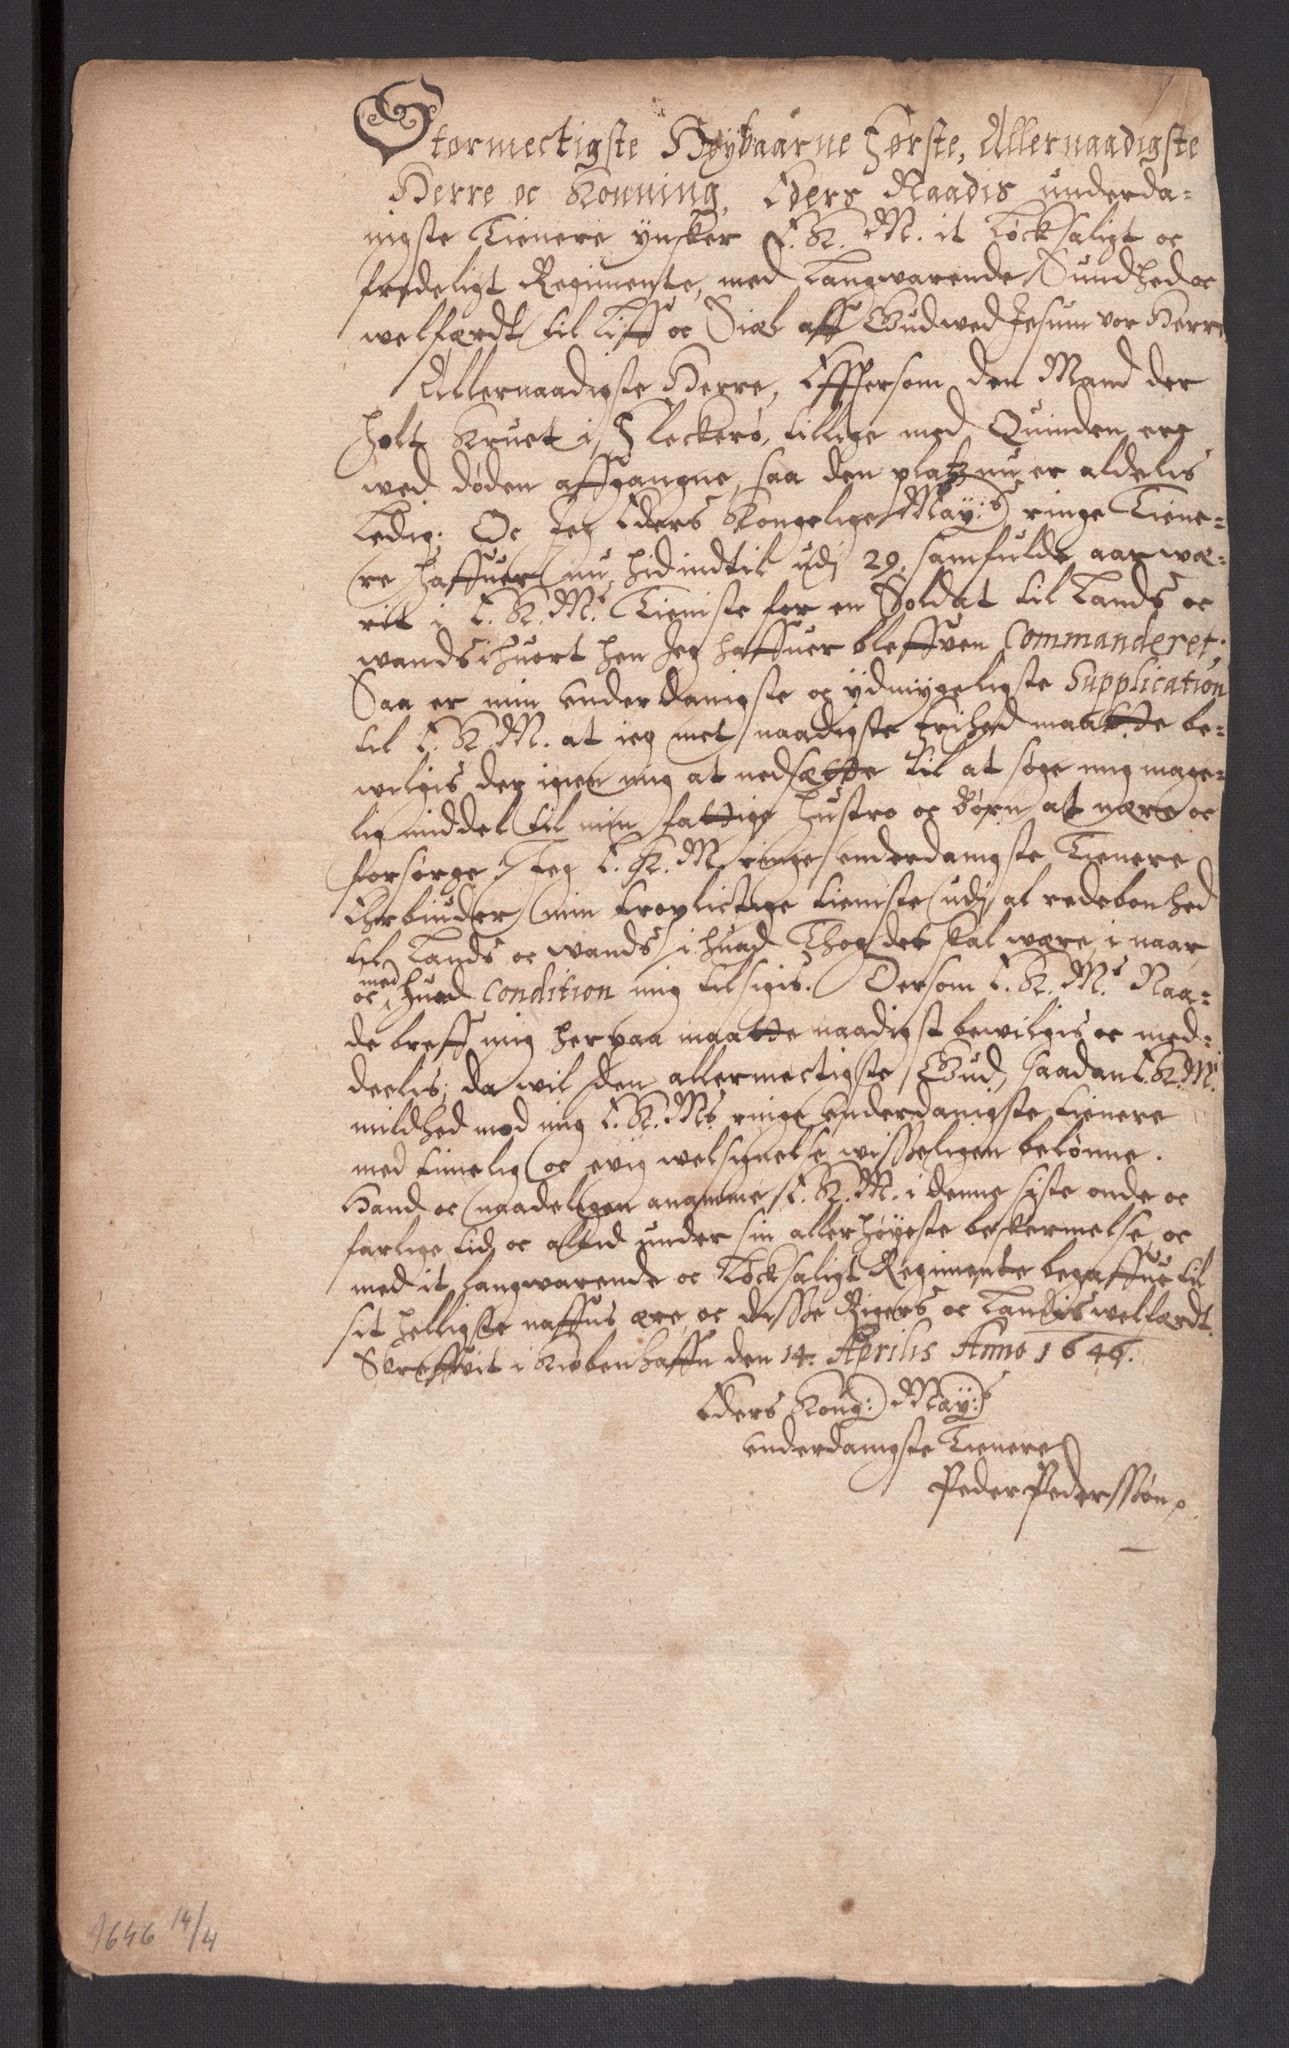 Stormectigste Høybaarne Førſte, Allernaadigste
Herre oc Konning, Eders Naadis underda-
nigste Tienere ynsker E. K. M. it Løcksaligt oc
fredeligt Regimente, med langwarende Sundhed oc
welfærdt til Liff oc Siæl aff Gud wed Jesum vor Herre
Allernaadigste Herre, Effersom den Mand der
holt Kruet i Fleckerø, tillige med Quinden, ere
wed døden affgangne, saa den platz nu er aldelis
Ledig. Oc Jeg Eders Kongelige May:s ringe Tiene-
re haffuer nu hid indtil udj 29 samfulde aar wæ-
rit i E. K. M.s Tieniste for en Soldat til Lands oc
wands ihuort hen Jeg haffuer bleffven Commanderet;
Saa er min underdanigste oc ydmygeligste Supplication
til E. K. M. at ieg met naadigste frihed maatte be-
wilgis der igen mig at nedsætte til at søge mig mage-
lig middel til min fattige Hustro oc Børn at nære oc
forsørge. Jeg E. K. M. ringe underdanigste Tienere
Erbiuder min troplictige tieniste udj al redebonhed
til Lands oc wands i huad Thog det skal være, i naar
oc med huad Condition mig tilsigis. Dersom E. K. M.s Naa-
de breff mig herpaa maatte naadigst bewilgis oc med-
deelis; da wil den allermectigste Gud, saadan E. K. M.
mildhed mod mig E. K. Ms. ringe underdanigste tienere
med timelig oc evig welsignelse wisseligen belønne.
Hand oc naadeligen anamme E. K. M. i denne siste onde oc
farlige tid oc altid under sin allerhøyeste beskermelse, oc
med it langwarende oc Løcksaligt Regimente begaffue til
sit helligste naffns ære, oc disse Rigers oc Landis welfærdt.
Skreffvit i Kiøbenhaffn den 14. Aprilis Anno 1646.
Eders Kong: May:s
underdanigste Tienere
Peder Pederssøn
1646 14/4